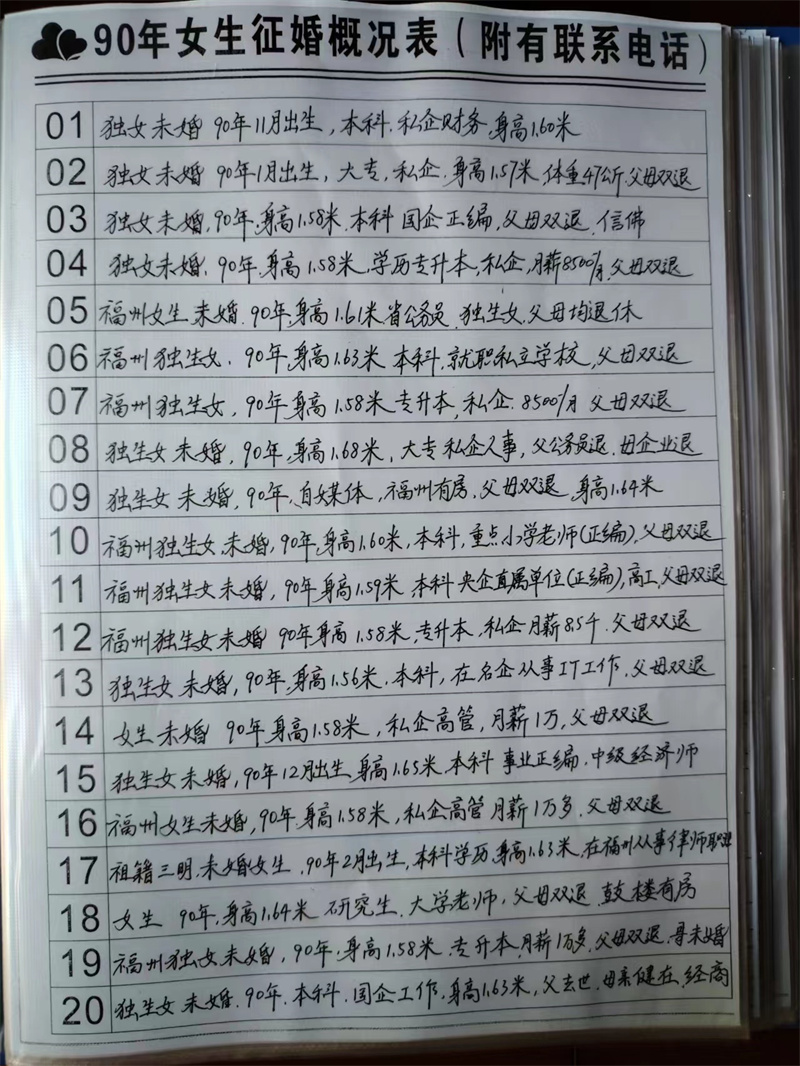 90年女生征婚概况表（附有联系电话）
01 独女未婚 90年11月出生，本科.私企财务,身高1.60米
02 独女未婚 90年1月出生，大专,私企.身高1.57米 体重47公斤.父母双退
03 独女未婚,90年,身高1.58米.本科 国企正编,父母双退.信佛
04 独女未婚.90年,身高1.58米,学历专升本,私企,月薪8500/月,父母双退
05 福州女生.未婚.90年,身高1.61米省公务员.独生女.父母均退休
06 福州独生女.90年,身高1.63米 本科,就职私立学校,父母双退
07 福州独生女,90年,身高1.58米 专升本,私企.8500/月 父母双退
08 独生女 未婚,90年,身高1.68米，大专 私企人事，父公务员退.母企业退
09 独生女 未婚,90年,自媒体,福州有房,父母双退,身高1.64米
10 福州独生女,未婚,90年,身高1.60米,本科,重点小学老师(正编),父母双退
11 福州独生女未婚,90年,身高1.59米,本科 央企直属单位(正编),高工,父母双退
12 福州独生女未婚 90年,身高1.58米,专升本,私企月薪8.5千.父母双退
13 独生女 未婚,90年,身高1.56米.本科,在名企从事IT工作,父母双退
14 女生未婚 90年身高1.58米,私企高管,月薪1万,父母双退
15 独生女未婚,90年12月出生,身高1.65米.本科 事业正编.中级经济师
16 福州女生未婚,90年.身高1.58米,私企高管 月薪1万多.父母双退
17 祖籍三明,未婚女生.90年2月出生,本科学历,身高1.63米,在福州从事律师职业
18 女生 90年,身高1.64米 研究生.大学老师,父母双退.鼓楼有房
19 福州独女未婚,90年,身高1.58米.专升本,月薪1万多,父母双退.哥未婚
20 独生女 未婚.90年.本科.国企工作,身高1.63米,父去世.母亲健在,经商